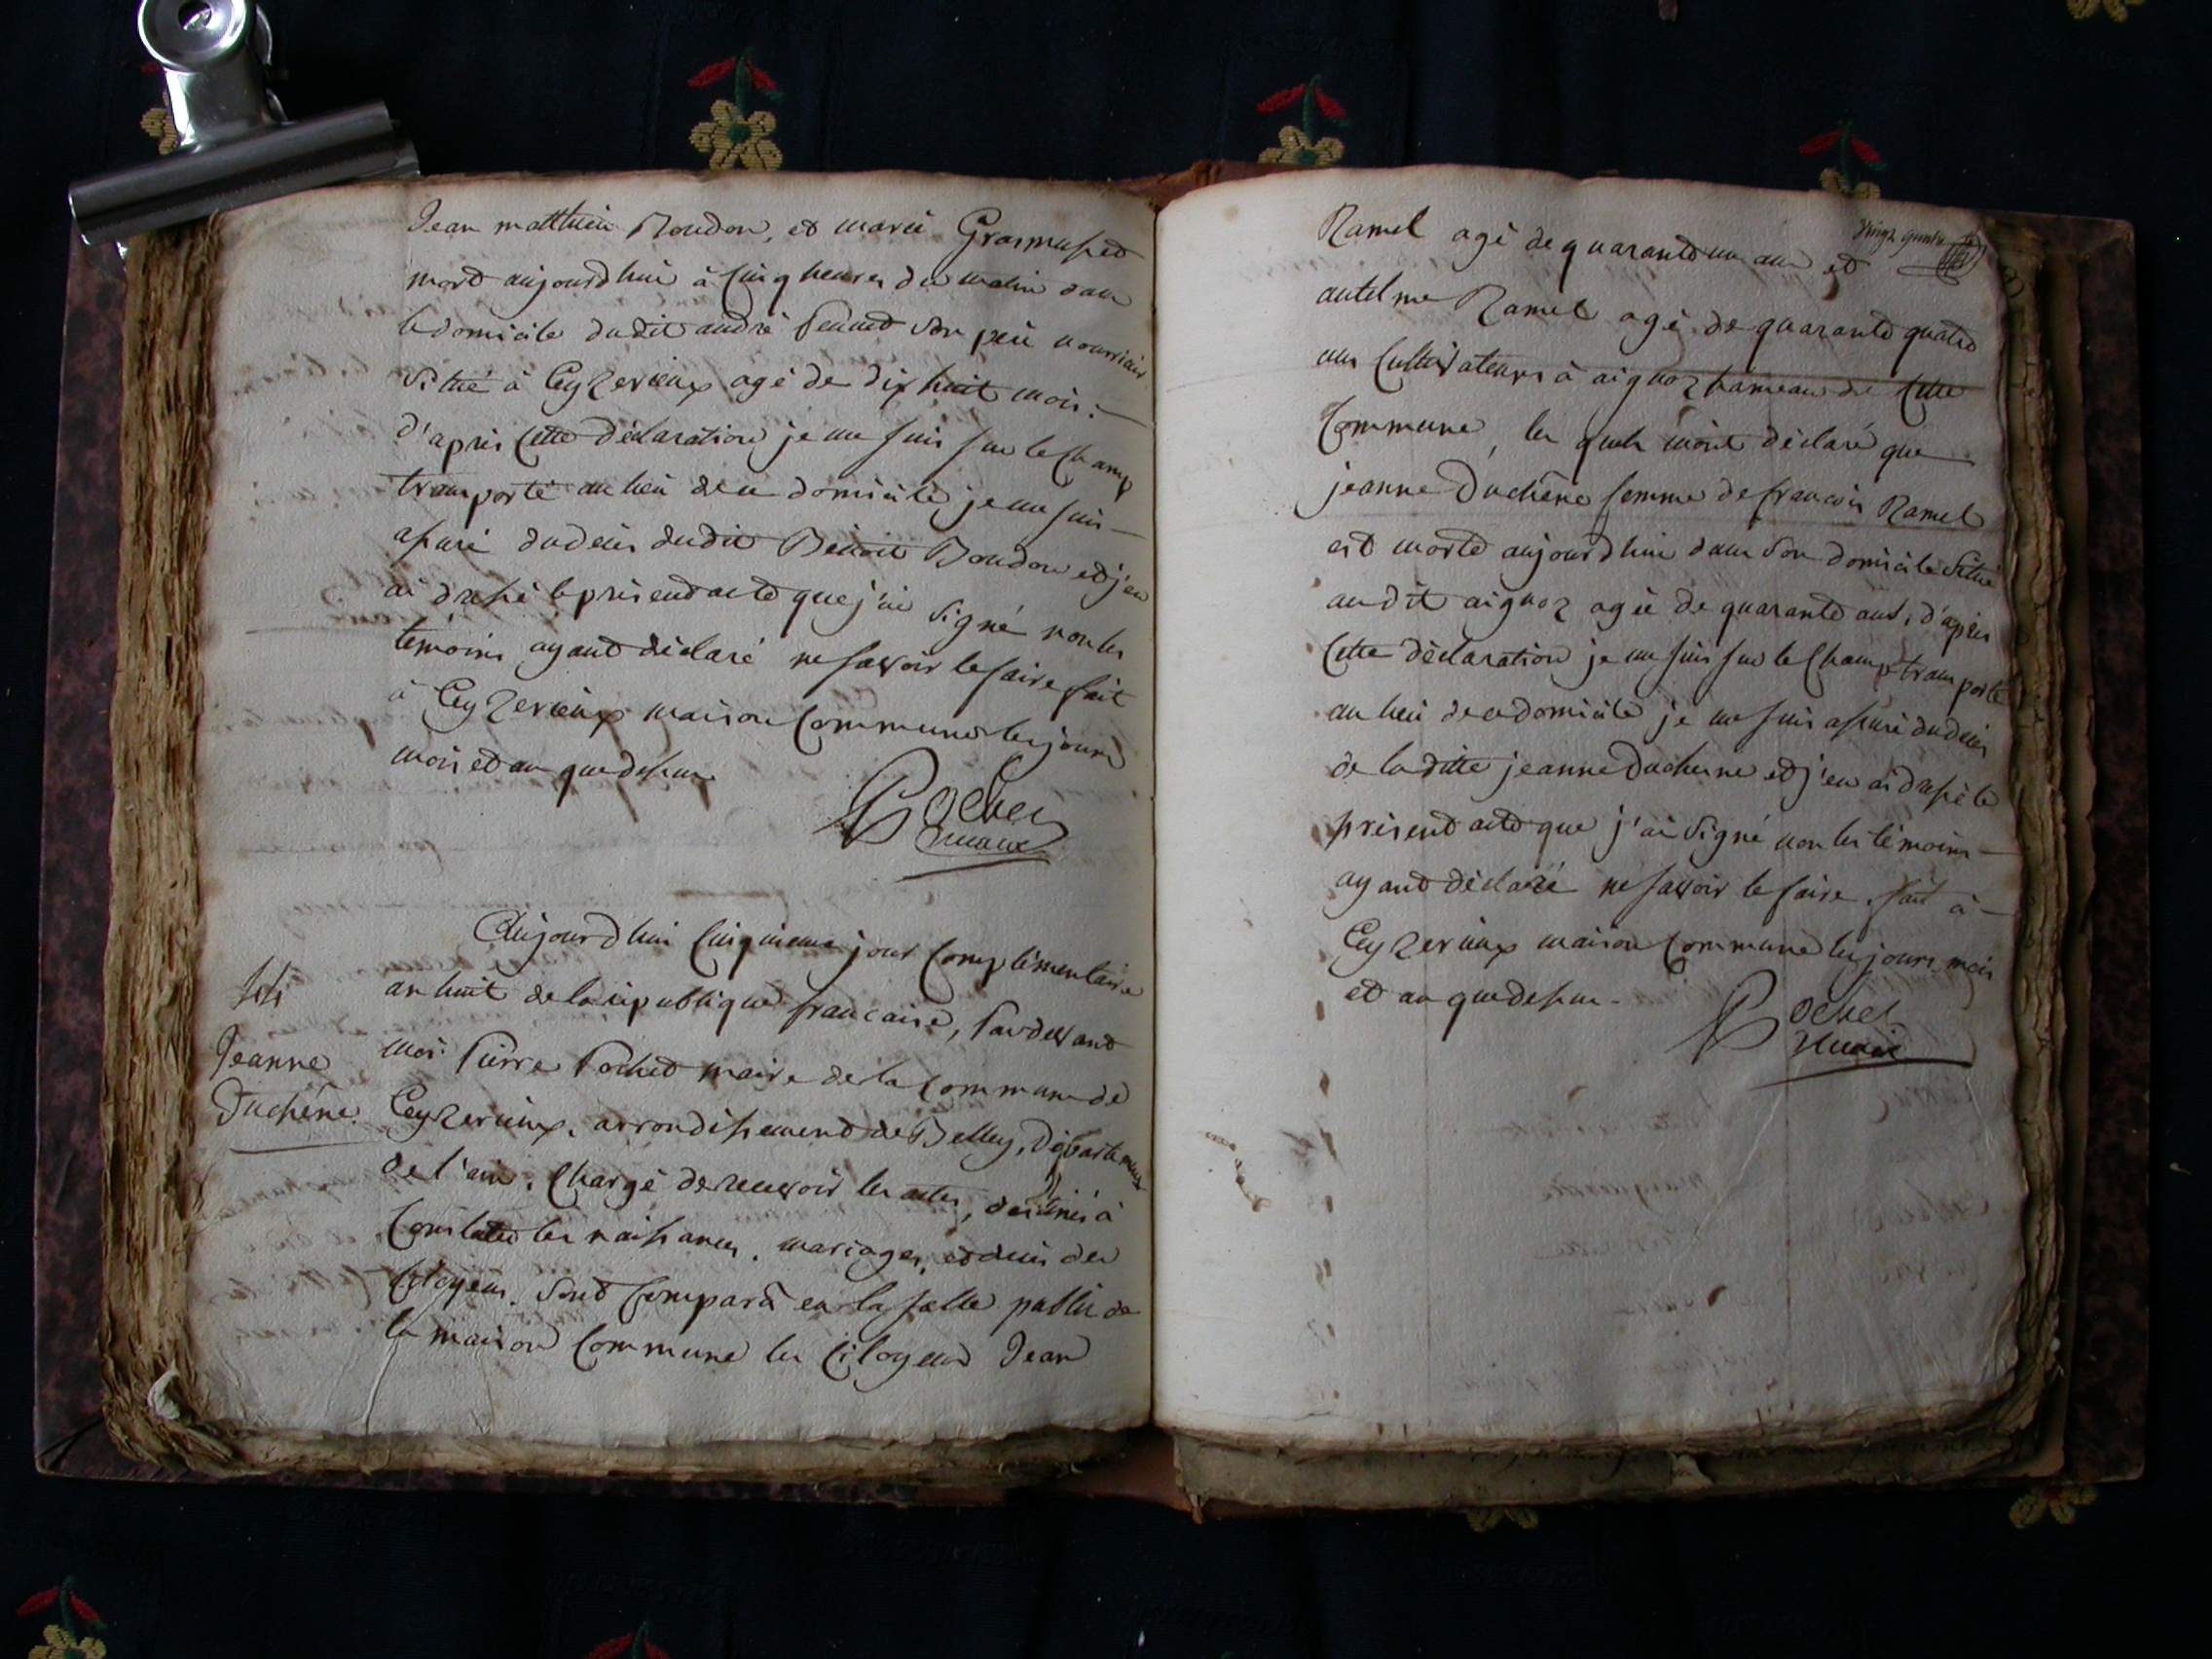 Jean matthieu Roudon, et marie Grosmuset
mort aujourd'hui à Cinq heures du matin dans
le domicile dudit andré son père nourricier
Situé à Ceyzerieux agé de dix huit mois.
d'après Cette déclaration je me suis sur le Champ
transporté au lieu de ce domicile, je me suis
assuré du decès dudit Benoit Boudon et j'en
ai dressé le présent acte que j'ai Signé non les
témoins ayant déclaré ne savoir le faire, fait
à Ceyzerieux maison Commune les jours
mois et an que dessus
Pochet
maire
44
Jeanne
Duchêne.
Aujourd'hui Cinquieme jour Complémentaire
an huit de la république française, Pardevant
moi Pierre Pochet maire de la Commune de
Ceyzerieux, arrondissement de Belley, Département
de l'ain, Chargé de recevoir les actes, destinés à
Constater les naissances, mariages, et decès des
Citoyens, Sont Comparu en la salle public de
la maison Commune les Citoyens Jean
Ramel agé de quarante un ans et
antelme Ramel agé de quarante quatre
ans Cultivateurs à aignoz hameau de Cette
Commune, les quels m'ont déclaré que
jeanne Duchêne femme de francois Ramel
est morte aujourd'hui dans Son domicile Situé
au dit aignoz agée de quarante ans, d'après
Cette déclaration je me suis sur le Champ transporté
au lieu de ce domicile je me suis assuré du decès
de la ditte jeanne Duchesne et j'en ai dressé le
présent acte que j'ai Signé non les témoins
ayant déclaré ne savoir le faire, fait à
Ceyzerieux maison Commune les jours mois
et an que dessus.
Pochet
maire